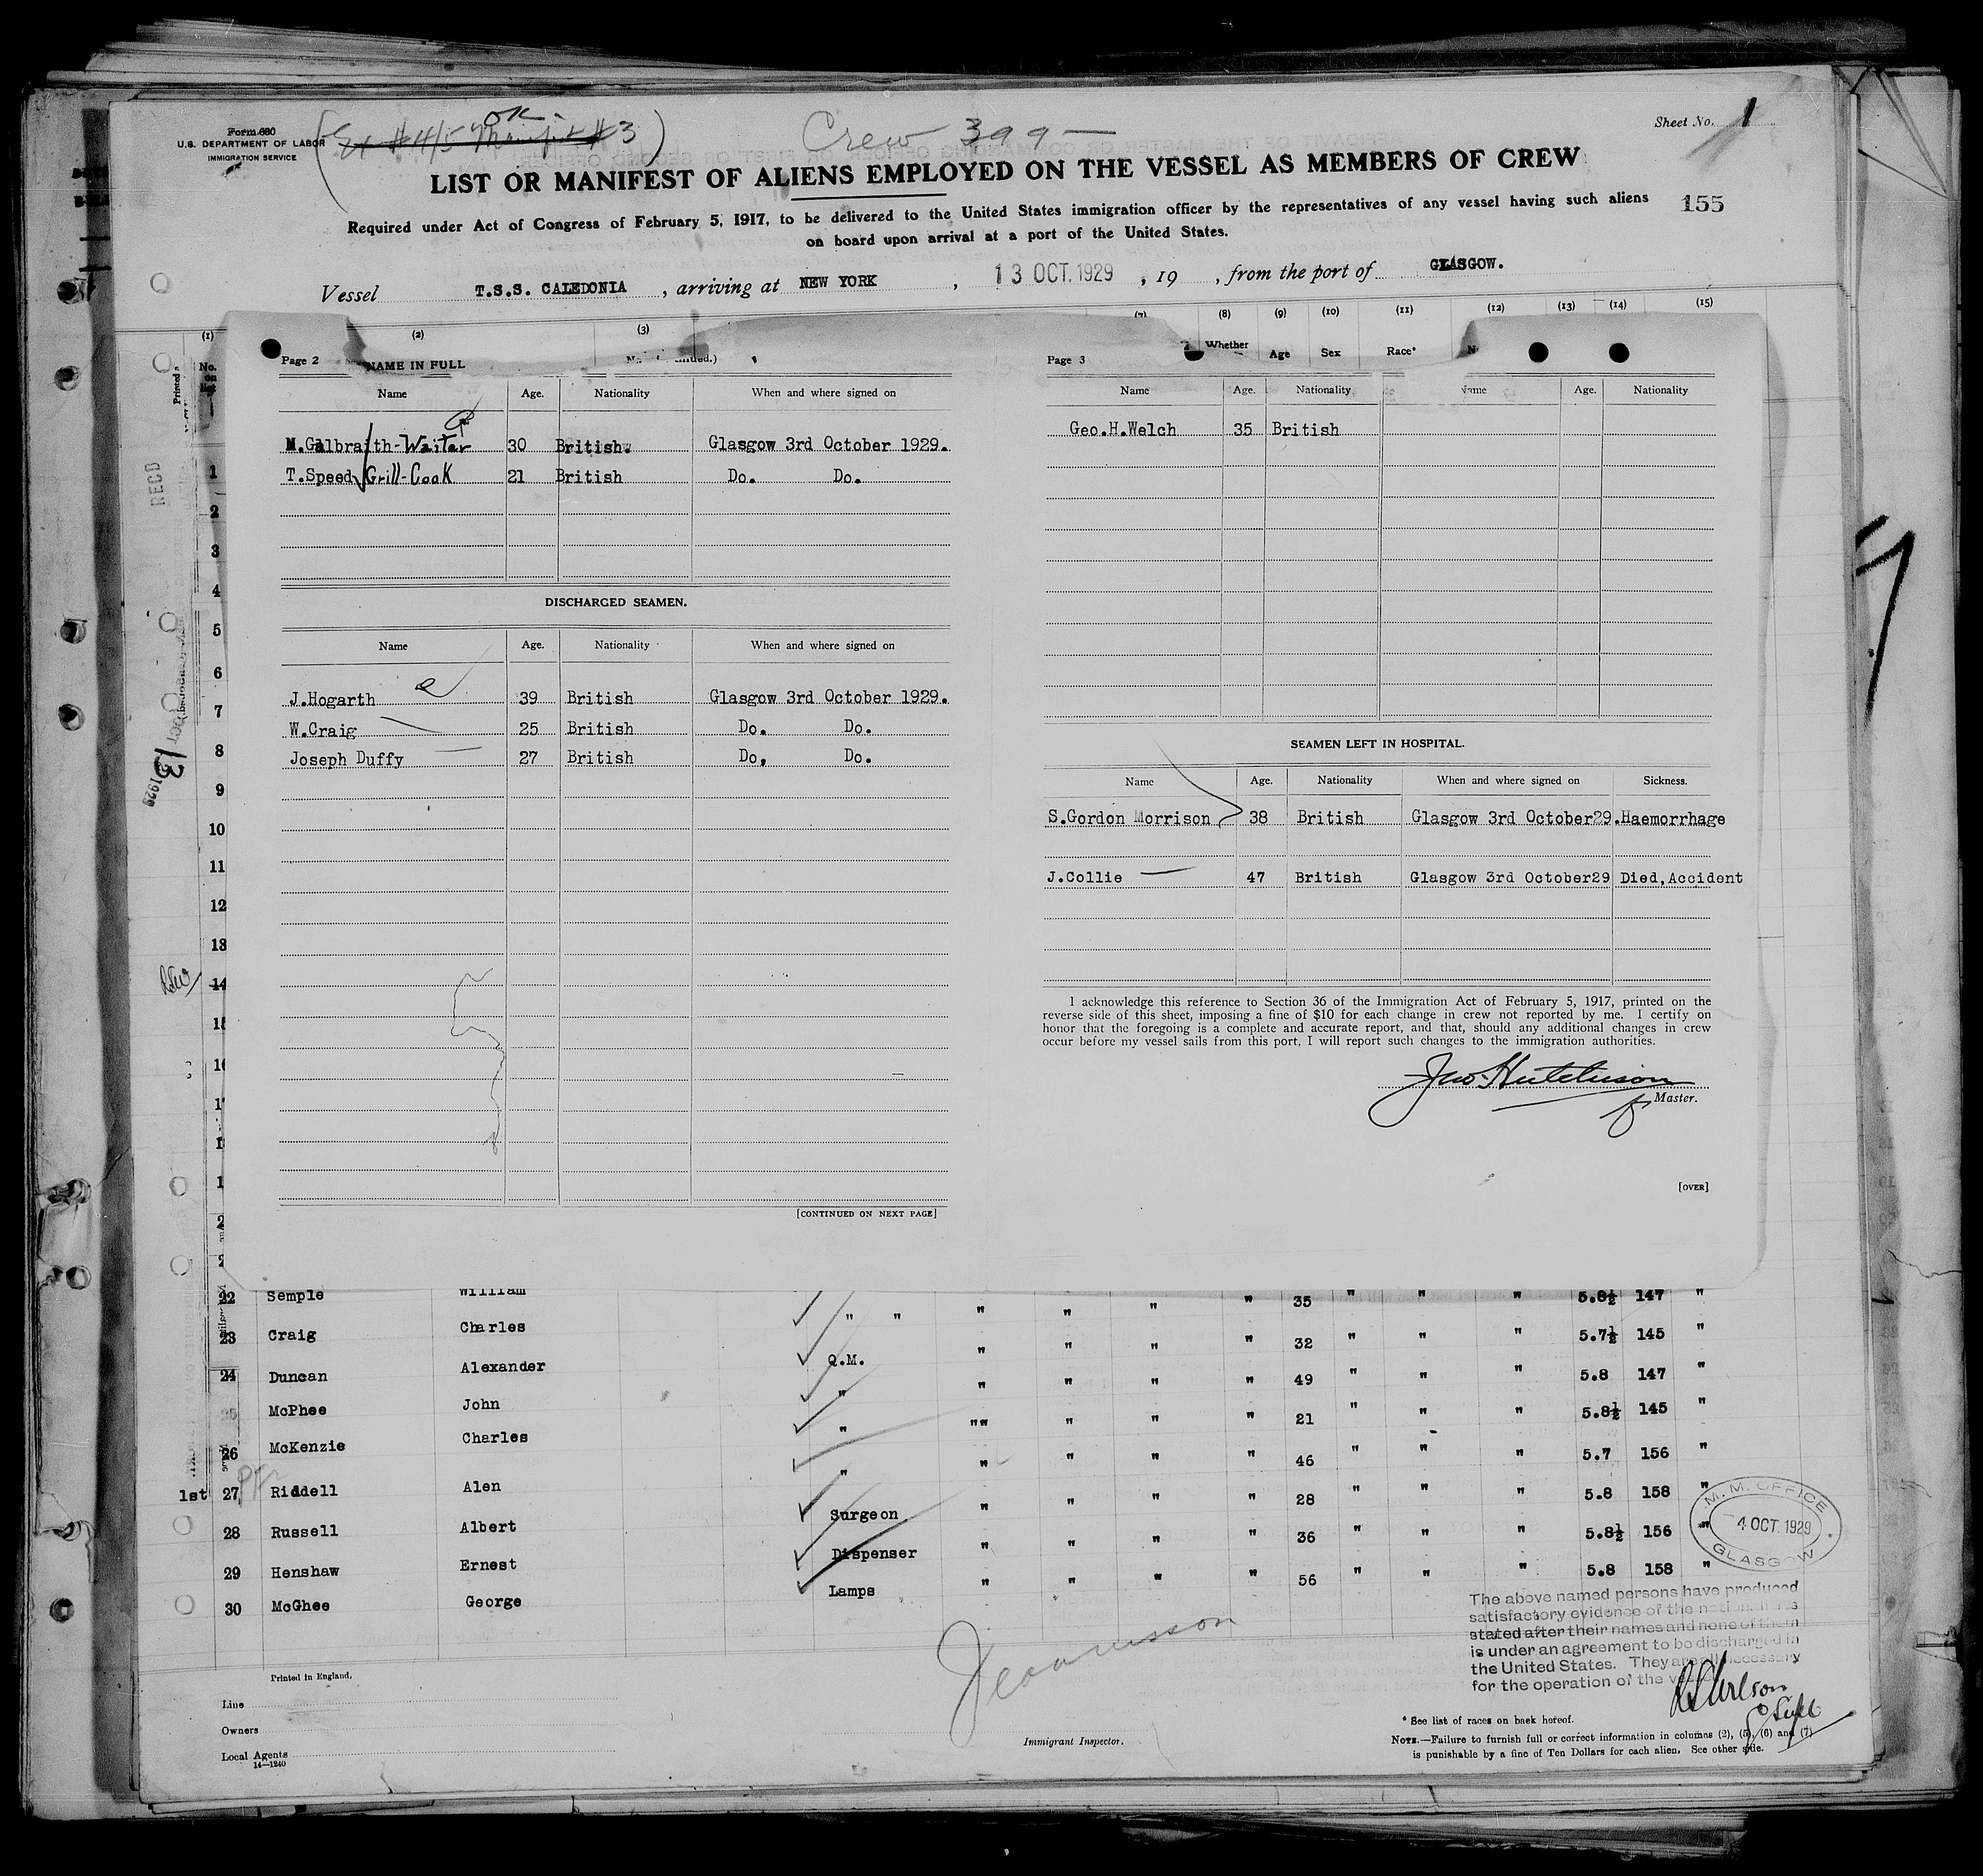 Form 680
U.S. DEPARTMENT OF LABOR
IMMIGRATION SERVICE
OK
Crew 399 —
Sheet No. 1
LIST OR MANIFEST OF ALIENS EMPLOYED ON THE VESSEL AS MEMBERS OF CREW
155
Required under Act of Congress of February 5, 1917, to be delivered to the United States immigration officer by the representatives of any vessel having such aliens
on board upon arrival at a port of the United States.
Vessel T.S.S. CALEDONIA , arriving at NEW YORK , 13 OCT. 1929 , 19 , from the port of GLASGOW.
(1) (2) (3) (7) (8) (9) (10) (11) (12) (13) (14) (15)
No. on list
NAME IN FULL
Whether Age Sex Race*
Page 2
Name Age. Nationality When and where signed on
M.Galbraith-Waiter 30 British. Glasgow 3rd October 1929.
T.Speed Grill-Cook 21 British Do. Do.
DISCHARGED SEAMEN.
Name Age. Nationality When and where signed on
J.Hogarth 39 British Glasgow 3rd October 1929.
W.Craig 25 British Do. Do.
Joseph Duffy 27 British Do. Do.
[CONTINUED ON NEXT PAGE]
Page 3
Name Age. Nationality Name Age. Nationality
Geo.H.Welch 35 British
SEAMEN LEFT IN HOSPITAL.
Name Age. Nationality When and where signed on Sickness.
S.Gordon Morrison 38 British Glasgow 3rd October29. Haemorrhage
J.Collie 47 British Glasgow 3rd October29 Died,Accident
I acknowledge this reference to Section 36 of the Immigration Act of February 5, 1917, printed on the
reverse side of this sheet, imposing a fine of $10 for each change in crew not reported by me. I certify on
honor that the foregoing is a complete and accurate report, and that, should any additional changes in crew
occur before my vessel sails from this port, I will report such changes to the immigration authorities.
Jno. Hutchison
Master.
[OVER]
RECD
13
1929
1
2
3
4
5
6
7
8
9
10
11
12
13
14
22 Semple William " " " " " " 35 " " " 5.8½ 147 "
23 Craig Charles Q.M. " " " " 32 " " " 5.7½ 145 "
24 Duncan Alexander " " " " " 49 " " " 5.8 147 "
McPhee John " "" " " " 21 " " " 5.8½ 145 "
26 McKenzie Charles " " " " " 46 " " " 5.7 156 "
1st 27 Riddell Alen Surgeon " " " " 28 " " " 5.8 158 "
28 Russell Albert Dispenser " " " " 36 " " " 5.8½ 156 "
29 Henshaw Ernest Lamps " " " " 56 " " " 5.8 158 "
30 McGhee George
M. M. OFFICE
4 OCT. 1929
GLASGOW
The above named persons have produced
satisfactory evidence of the
stated after their names and none of them
is under an agreement to be discharged in
the United States. They are all necessary
for the operation of the vessel
Printed in England.
Line
Owners
Local Agents
14—1240
Immigrant Inspector.
* See list of races on back hereof.
NOTE.—Failure to furnish full or correct information in columns (2), (5), (6) and (7)
is punishable by a fine of Ten Dollars for each alien. See other side.